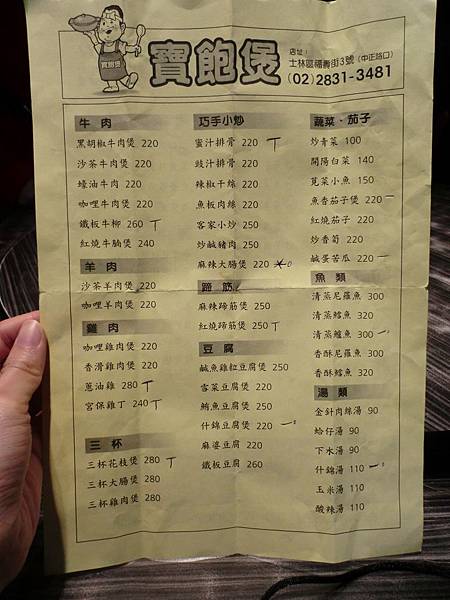 寶飽煲
寶飽煲
店址：
士林區福壽街3號(中正路口)
(02)2831-3481
牛肉
黑胡椒牛肉煲 220
沙茶牛肉煲 220
蠔油牛肉 220
咖哩牛肉煲 220
鐵板牛柳 260 T
紅燒牛腩煲 240
羊肉
沙茶羊肉煲 220
咖哩羊肉煲 220
雞肉
咖哩雞肉煲 220
香滑雞肉煲 220
蔥油雞 280 T
宮保雞丁 240 T
三杯
三杯花枝煲 280 T
三杯大腸煲 280
三杯雞肉煲 280
巧手小炒
蜜汁排骨 220 T
豉汁排骨 220
辣椒干絲 220
魚板肉絲 220
客家小炒 250
炒鹹豬肉 250
麻辣大腸煲 220
蹄筋
麻辣蹄筋煲 250
紅燒蹄筋煲 250 T
豆腐
鹹魚雞粒豆腐煲 250
雪菜豆腐煲 220
鮪魚豆腐煲 250
什錦豆腐煲 220 一
麻婆豆腐 220
鐵板豆腐 260
蔬菜‧茄子
炒青菜 100
開陽白菜 140
莧菜小魚 150
魚香茄子煲 220 一
紅燒茄子 220
炒香菇 220
鹹蛋苦瓜 220 一
魚類
清蒸尼羅魚 300
清蒸鱈魚 320
清蒸鱸魚 300 一
香酥尼羅魚 300
香酥鱈魚 320
湯類
金針肉絲湯 90
蛤仔湯 90
下水湯 90
什錦湯 110 一
玉米湯 110
酸辣湯 110